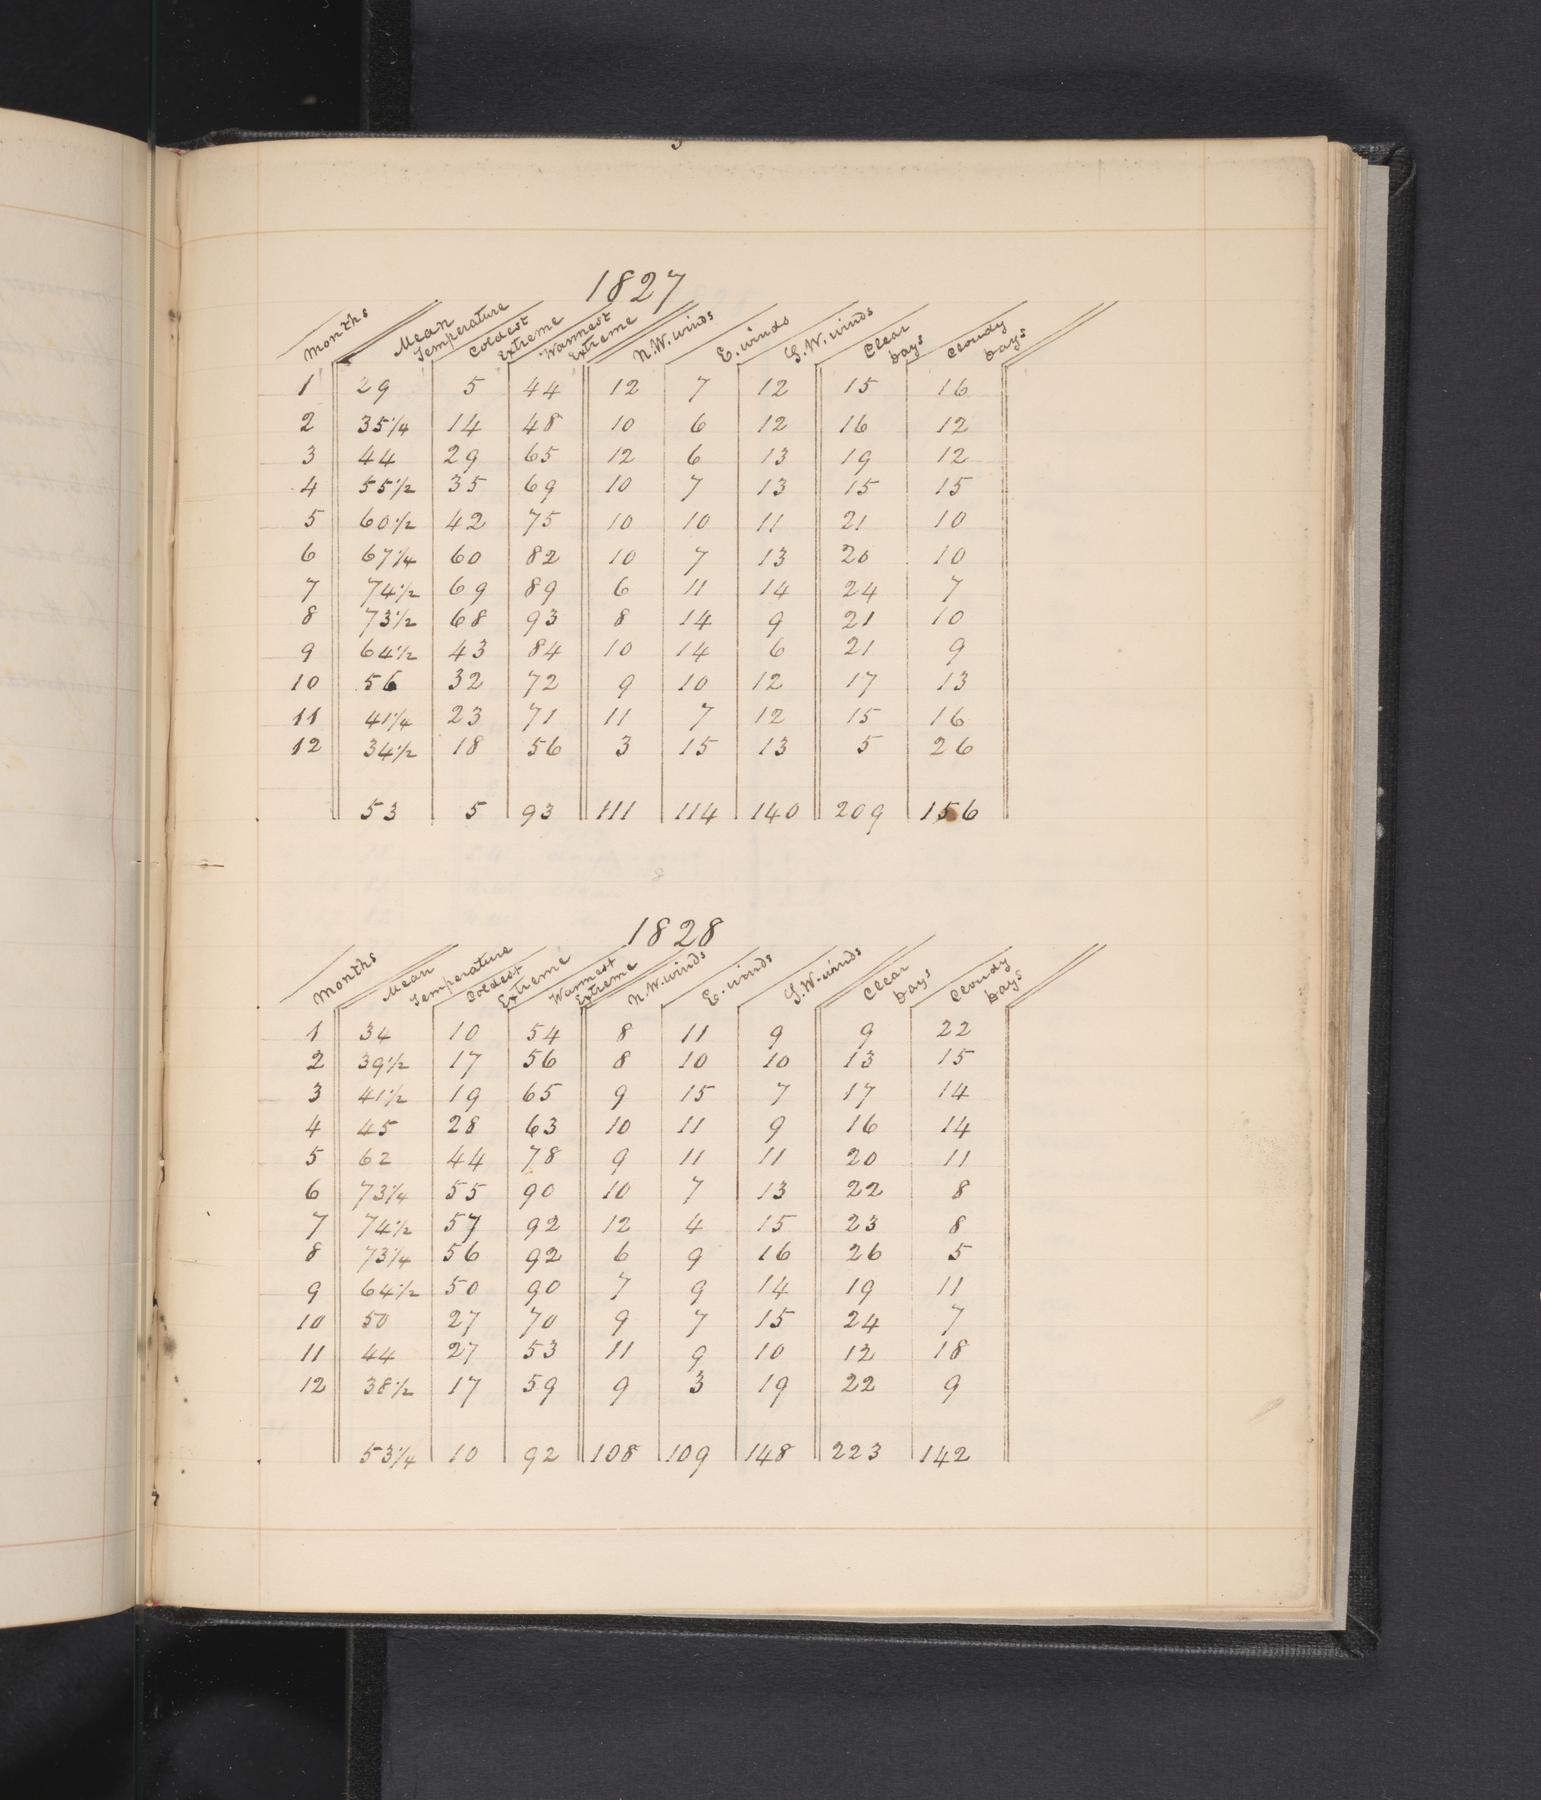 1827
Months Mean Temperature Coldest Extreme Warmest Extreme N.W. winds E. winds S.W. winds Clear Days Cloudy Days
1 29 5 44 12 7 12 15 16
2 35 1/4 14 48 10 6 12 16 12
3 44 29 65 12 6 13 19 12
4 55 1/2 35 69 10 7 13 15 15
5 60 1/2 42 75 10 10 11 21 10
6 67 1/4 60 82 10 7 13 20 10
7 74 1/2 69 89 6 11 14 24 7
8 73 1/2 68 93 8 14 9 21 10
9 64 1/2 43 84 10 14 6 21 9
10 56 32 72 9 10 12 17 13
11 41 1/4 23 71 11 7 12 15 16
12 34 1/2 18 56 3 15 13 5 26
53 5 93 111 114 140 209 156
1828
Months Mean Temperature Coldest Extreme Warmest Extreme N.W. winds E. winds S.W. winds Clear Days Cloudy Days
1 34 10 54 8 11 9 9 22
2 39 1/2 17 56 8 10 10 13 15
3 41 1/2 19 65 9 15 7 17 14
4 45 28 63 10 11 9 16 14
5 62 44 78 9 11 11 20 11
6 73 1/4 55 90 10 7 13 22 8
7 74 1/2 57 92 12 4 15 23 8
8 73 1/4 56 92 6 9 16 26 5
9 64 1/2 50 90 7 9 14 19 11
10 50 27 70 9 7 15 24 7
11 44 27 53 11 9 10 12 18
12 38 1/2 17 59 9 3 19 22 9
53 1/4 10 92 108 109 148 223 142